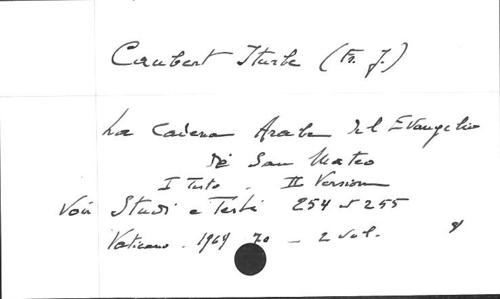 Caubert Iturbe (Fr. J.)
La Cadena Arabe del Evangelio
de San Mateo
I Texto. II Version
Voir Studi e Testi 254 et 255
Vaticano. 1969 70 - 2 vol.